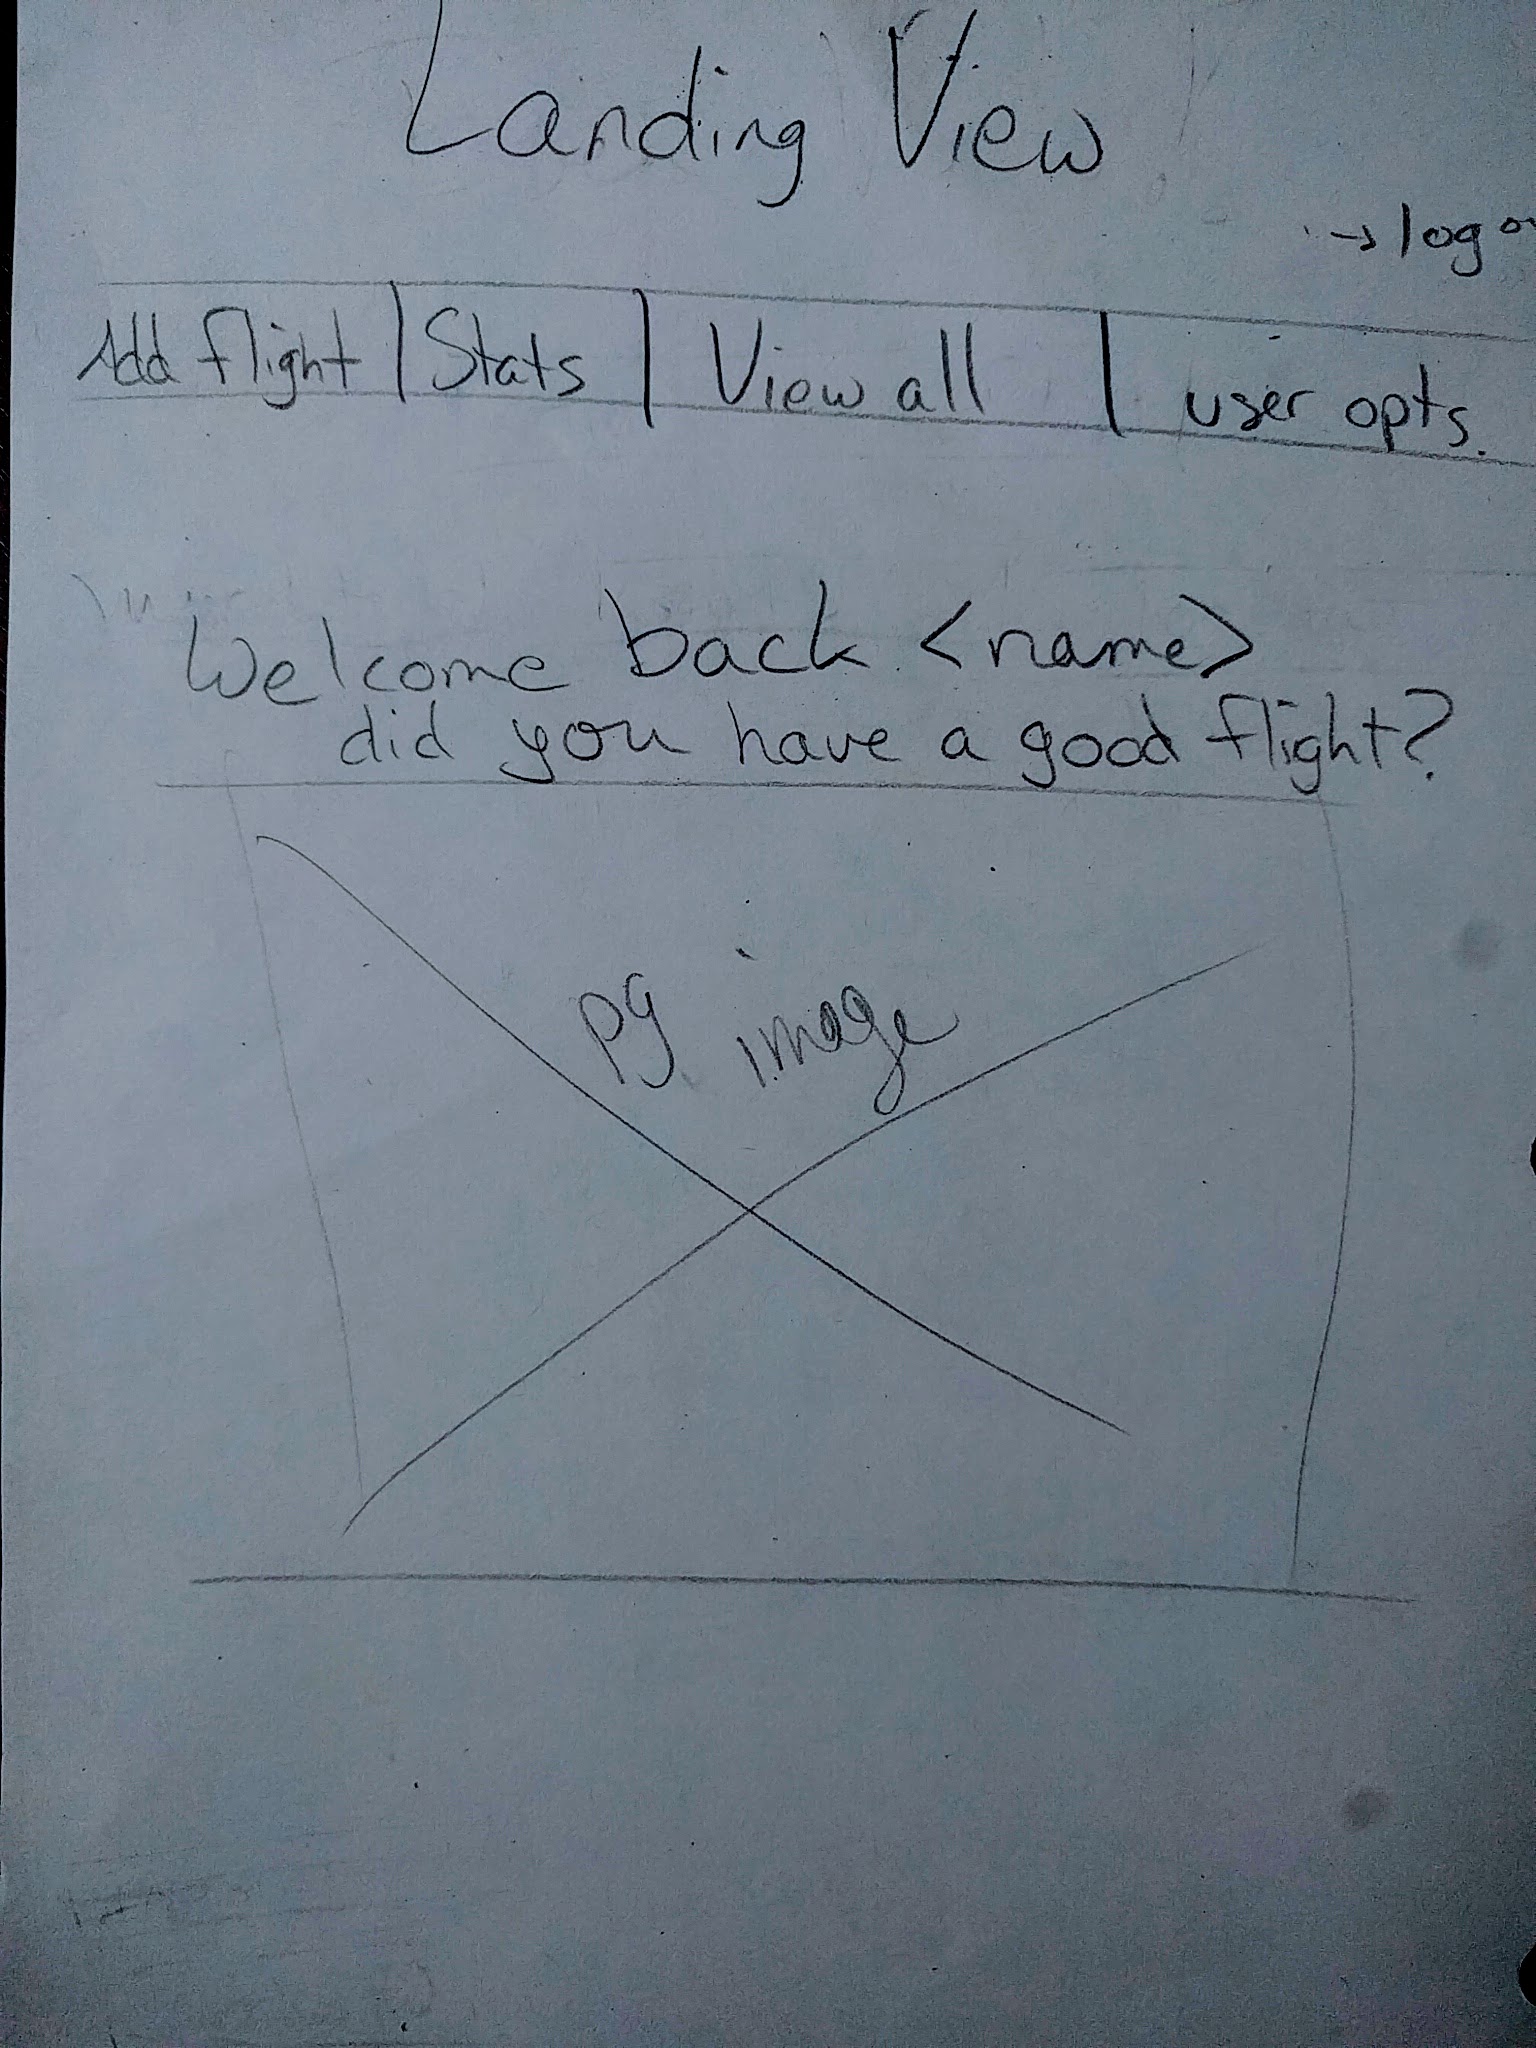 Landing View
→ log
Add flight | Stats | View all | user opts.
Welcome back <name>
did you have a good flight?
pg image